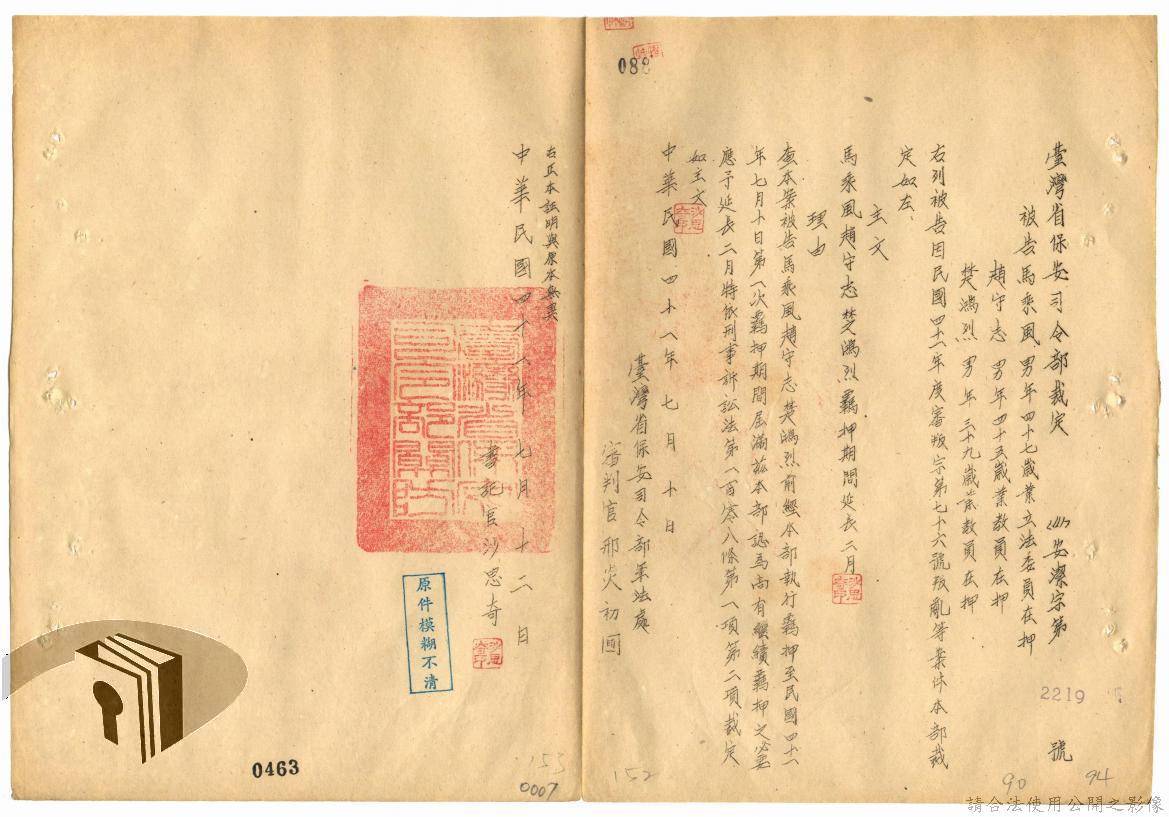 臺灣省保安司令部裁定
安潔字第2219號
被告馬乘風 男年四十七歲業立法委員在押
趙守志 男年四十五歲業教員在押
楚鴻烈 男年三十九歲業教員在押
右列被告因民國四十一年度審叛字第七十六號叛亂等案件本部裁
定如左、
主文
馬乘風趙守志楚鴻烈羈押期間延長二月
理由
查本案被告馬乘風趙守志楚鴻烈前經本部執行羈押至民國四十一
年七月十日第一次羈押期間屆滿茲本部認為尚有繼續羈押之必要
應予延長二月特依刑事訴訟法第一百零八條第一項第二項裁定
如主文
中華民國四十一年七月十日
臺灣省保安司令部軍法處
審判官邢炎初
右正本証明與原本無異
中華民國四十一年七月十二日
書記官沙思奇
原件模糊不清
0463
0007
153
152
90
94
請合法使用公開之影像